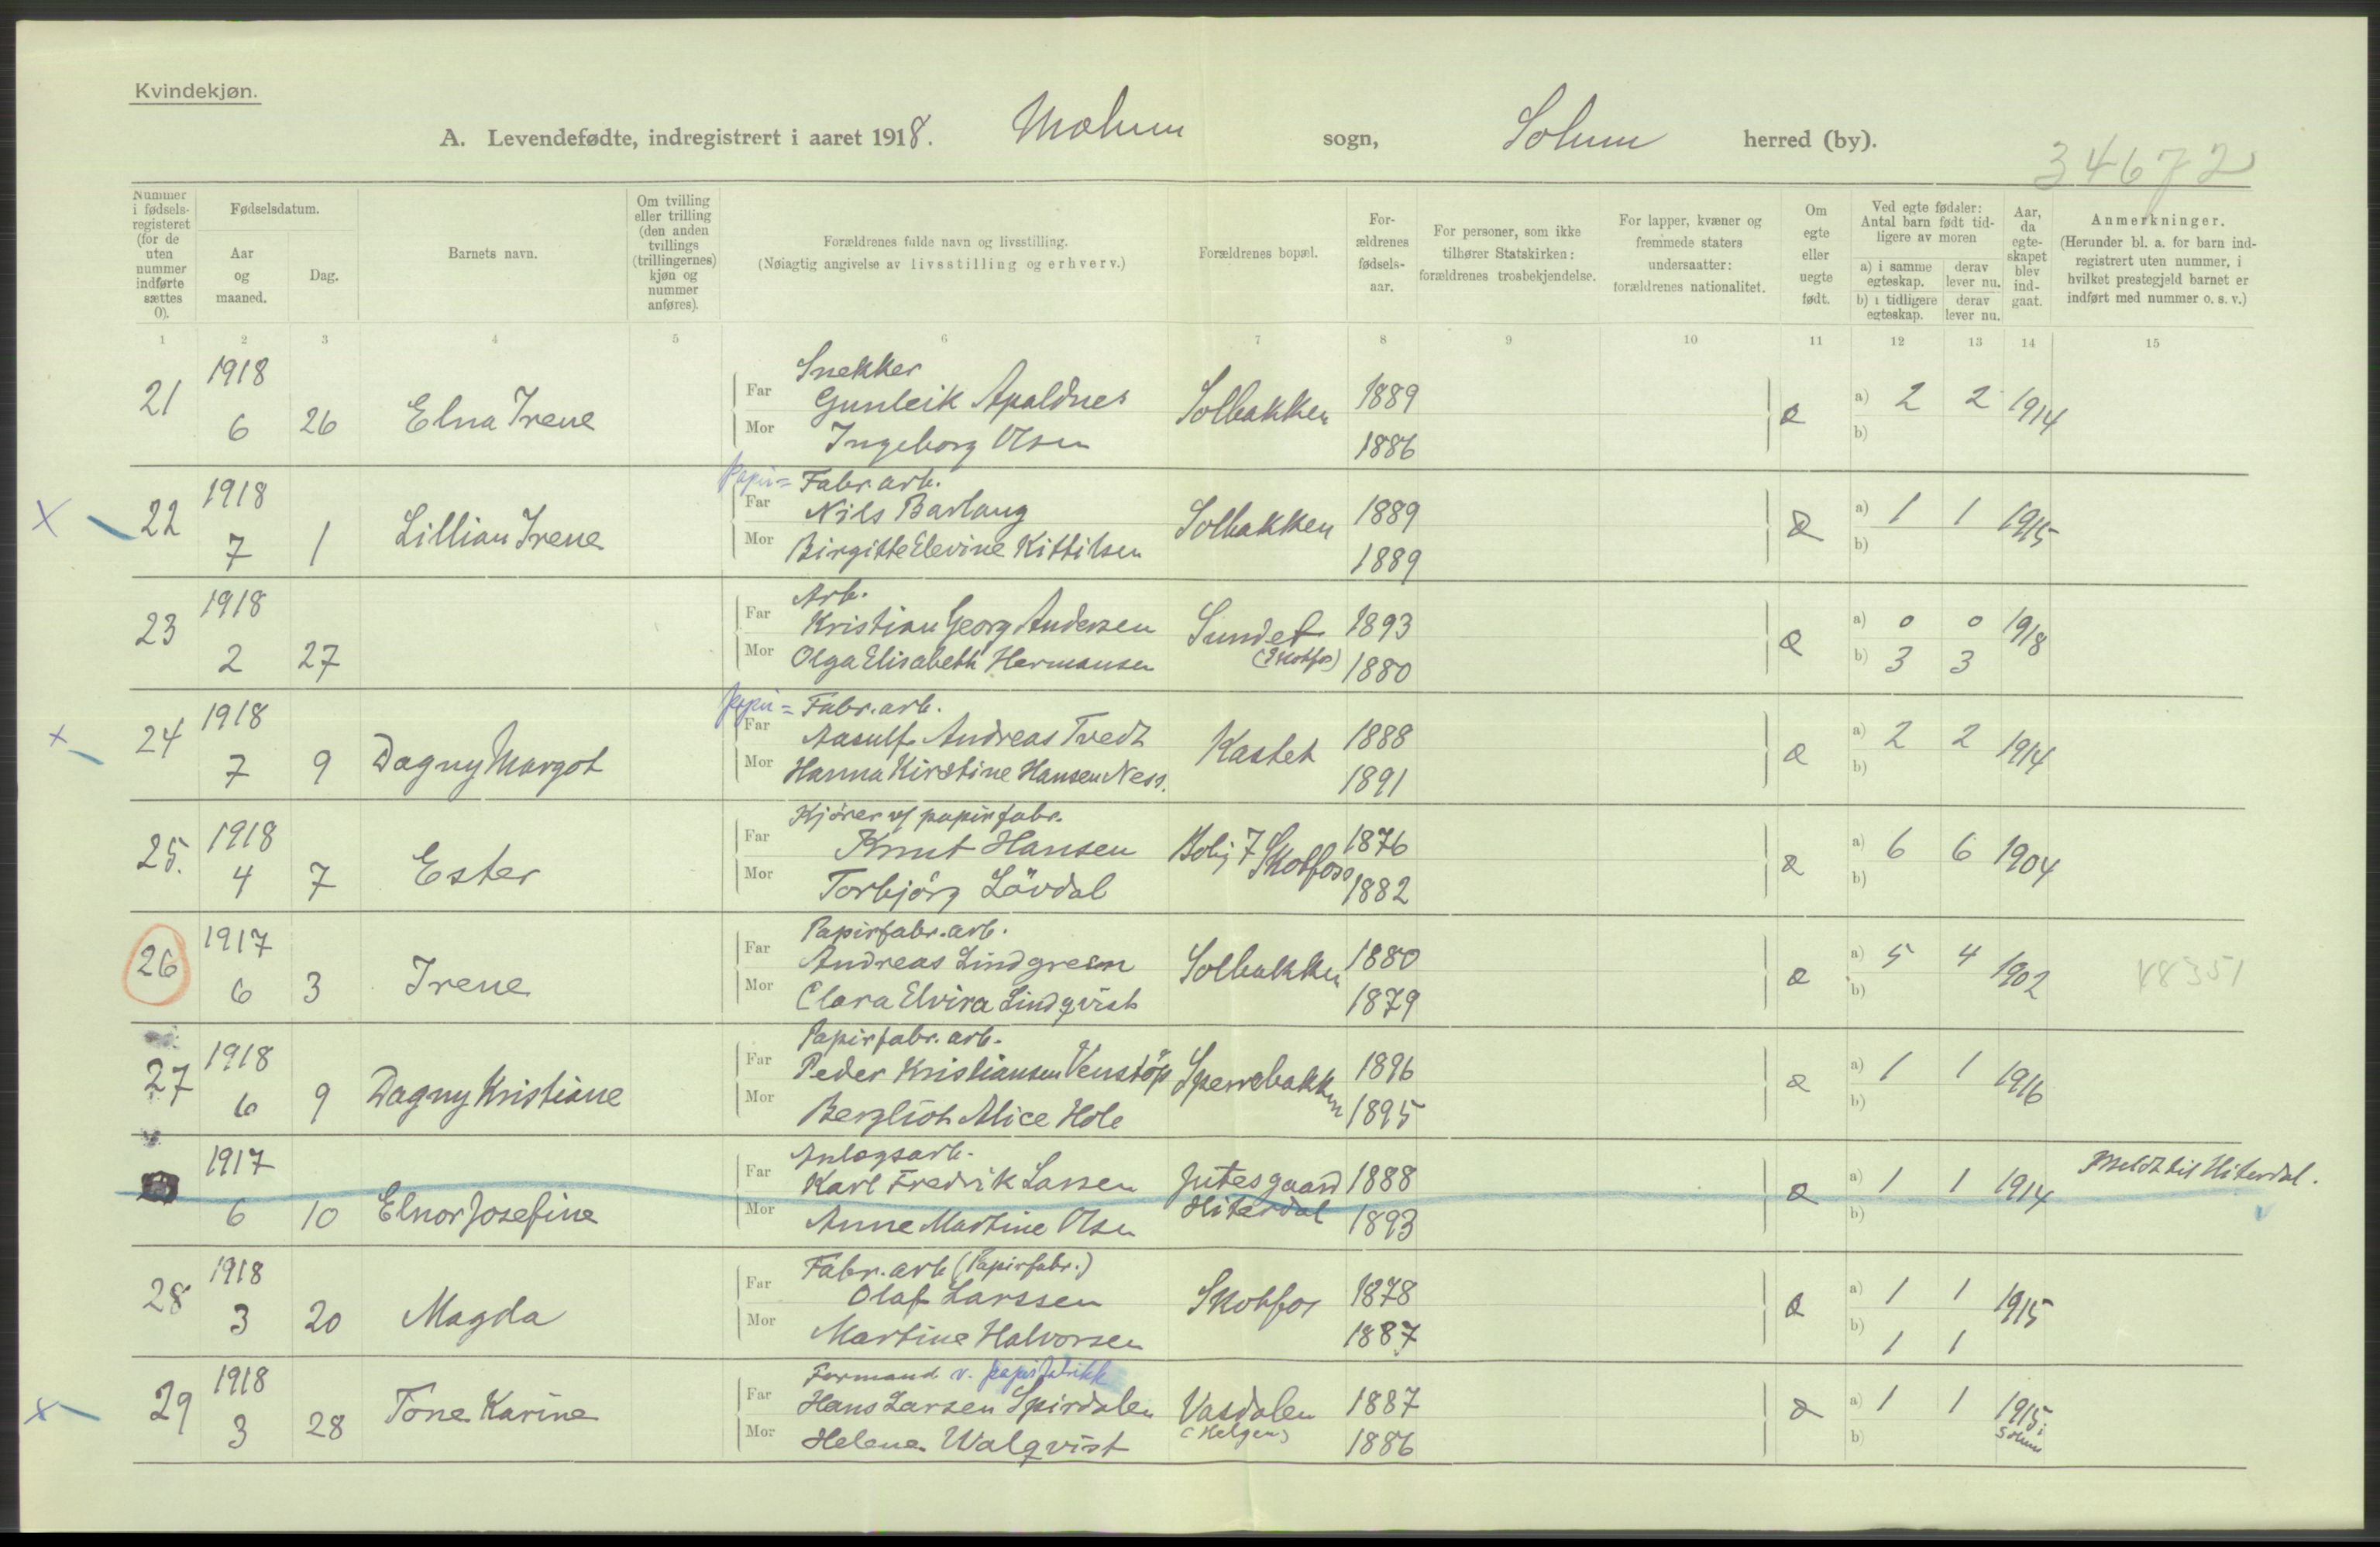 Kvindekjøn.
A. Levendefødte, indregistrert i aaret 1918. Mælum sogn, Solum herred (by).
34672
Nummer i fødsels-registeret (for de uten nummer indførte sættes 0).
Fødselsdatum.
Aar og maaned.
Dag.
Barnets navn.
Om tvilling eller trilling (den anden tvillings (trillingernes) kjøn og nummer anføres).
Forældrenes fulde navn og livsstilling.
(Nøiagtig angivelse av livsstilling og erhverv.)
Forældrenes bopæl.
For-ældrenes fødsels-aar.
For personer, som ikke tilhører Statskirken: forældrenes trosbekjendelse.
For lapper, kvæner og fremmede staters undersaatter: forældrenes nationalitet.
Om egte eller uegte født.
Ved egte fødsler: Antal barn født tid-ligere av moren
a) i samme egteskap. derav lever nu.
b) i tidligere egteskap. derav lever nu.
Aar, da egte-skapet blev ind-gaat.
Anmerkninger.
(Herunder bl. a. for barn ind-registrert uten nummer, i hvilket prestegjeld barnet er indført med nummer o. s. v.)
1 2 3 4 5 6 7 8 9 10 11 12 13 14 15
1918 Snekker
21 Far Gunleik Apaldnes Solbakken 1889 a) 2 2 1914
6 26 Elna Irene Mor Ingeborg Olsen 1886 b)
1918 papir= Fabr. arb.
22 Far Nils Barlaug Solbakken 1889 a) 1 1 1915
7 1 Lillian Irene Mor Birgitte Elevine Kittilsen 1889 b)
1918 Arb.
23 Far Kristian Georg Andersen Sundet 1893 a) 0 0 1918
2 27 Mor Olga Elisabeth Hermansen (Skotfos) 1880 b) 3 3
1918 papir= Fabr. arb.
24 Far Aasulf Andreas Tvedt Kastet 1888 a) 2 2 1914
7 9 Dagny Margot Mor Hanna Kirstine Hansen Ness. 1891 b)
1918 Kjører v/ papirfabr.
25. Far Knut Hansen Bolig 7 Skotfoss 1876 a) 6 6 1904
4 7 Ester Mor Torbjörg Lövdal 1882 b)
1917 Papirfabr. arb.
26 Far Andreas Lindgreen Solbakken 1880 a) 5 4 1902 48351
6 3 Irene Mor Clara Elvira Lindqvist 1879 b)
1918 Papirfabr. arb.
27 Far Peder Kristiansen Venstöp Sperrebakken 1896 a) 1 1 1916
6 9 Dagny Kristiane Mor Bergliot Alice Hole 1895 b)
1917 Anlægsarb. Meldt til Hiterdal.
Far Karl Fredrik Larsen Jutesgaard 1888 a) 1 1 1914
6 10 Elnor Josefine Mor Anne Martine Olsen Hiterdal 1893 b)
1918 Fabr. arb (Papirfabr.)
28 Far Olaf Larssen Skotfos 1878 a) 1 1 1915
3 20 Magda Mor Martine Halvorsen 1887 b) 1 1
1918 Formand v. papirfabrikk
29 Far Hans Larsen Spirdalen Vasdalen 1887 a) 1 1 1915 i Solum
3 28 Tone Karine Mor Helene Walqvist (Helgen) 1886 b)